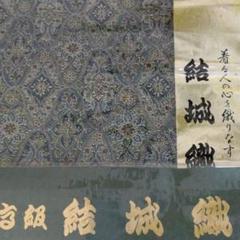 着る人の心を織りなす
結城織
高級 結城織